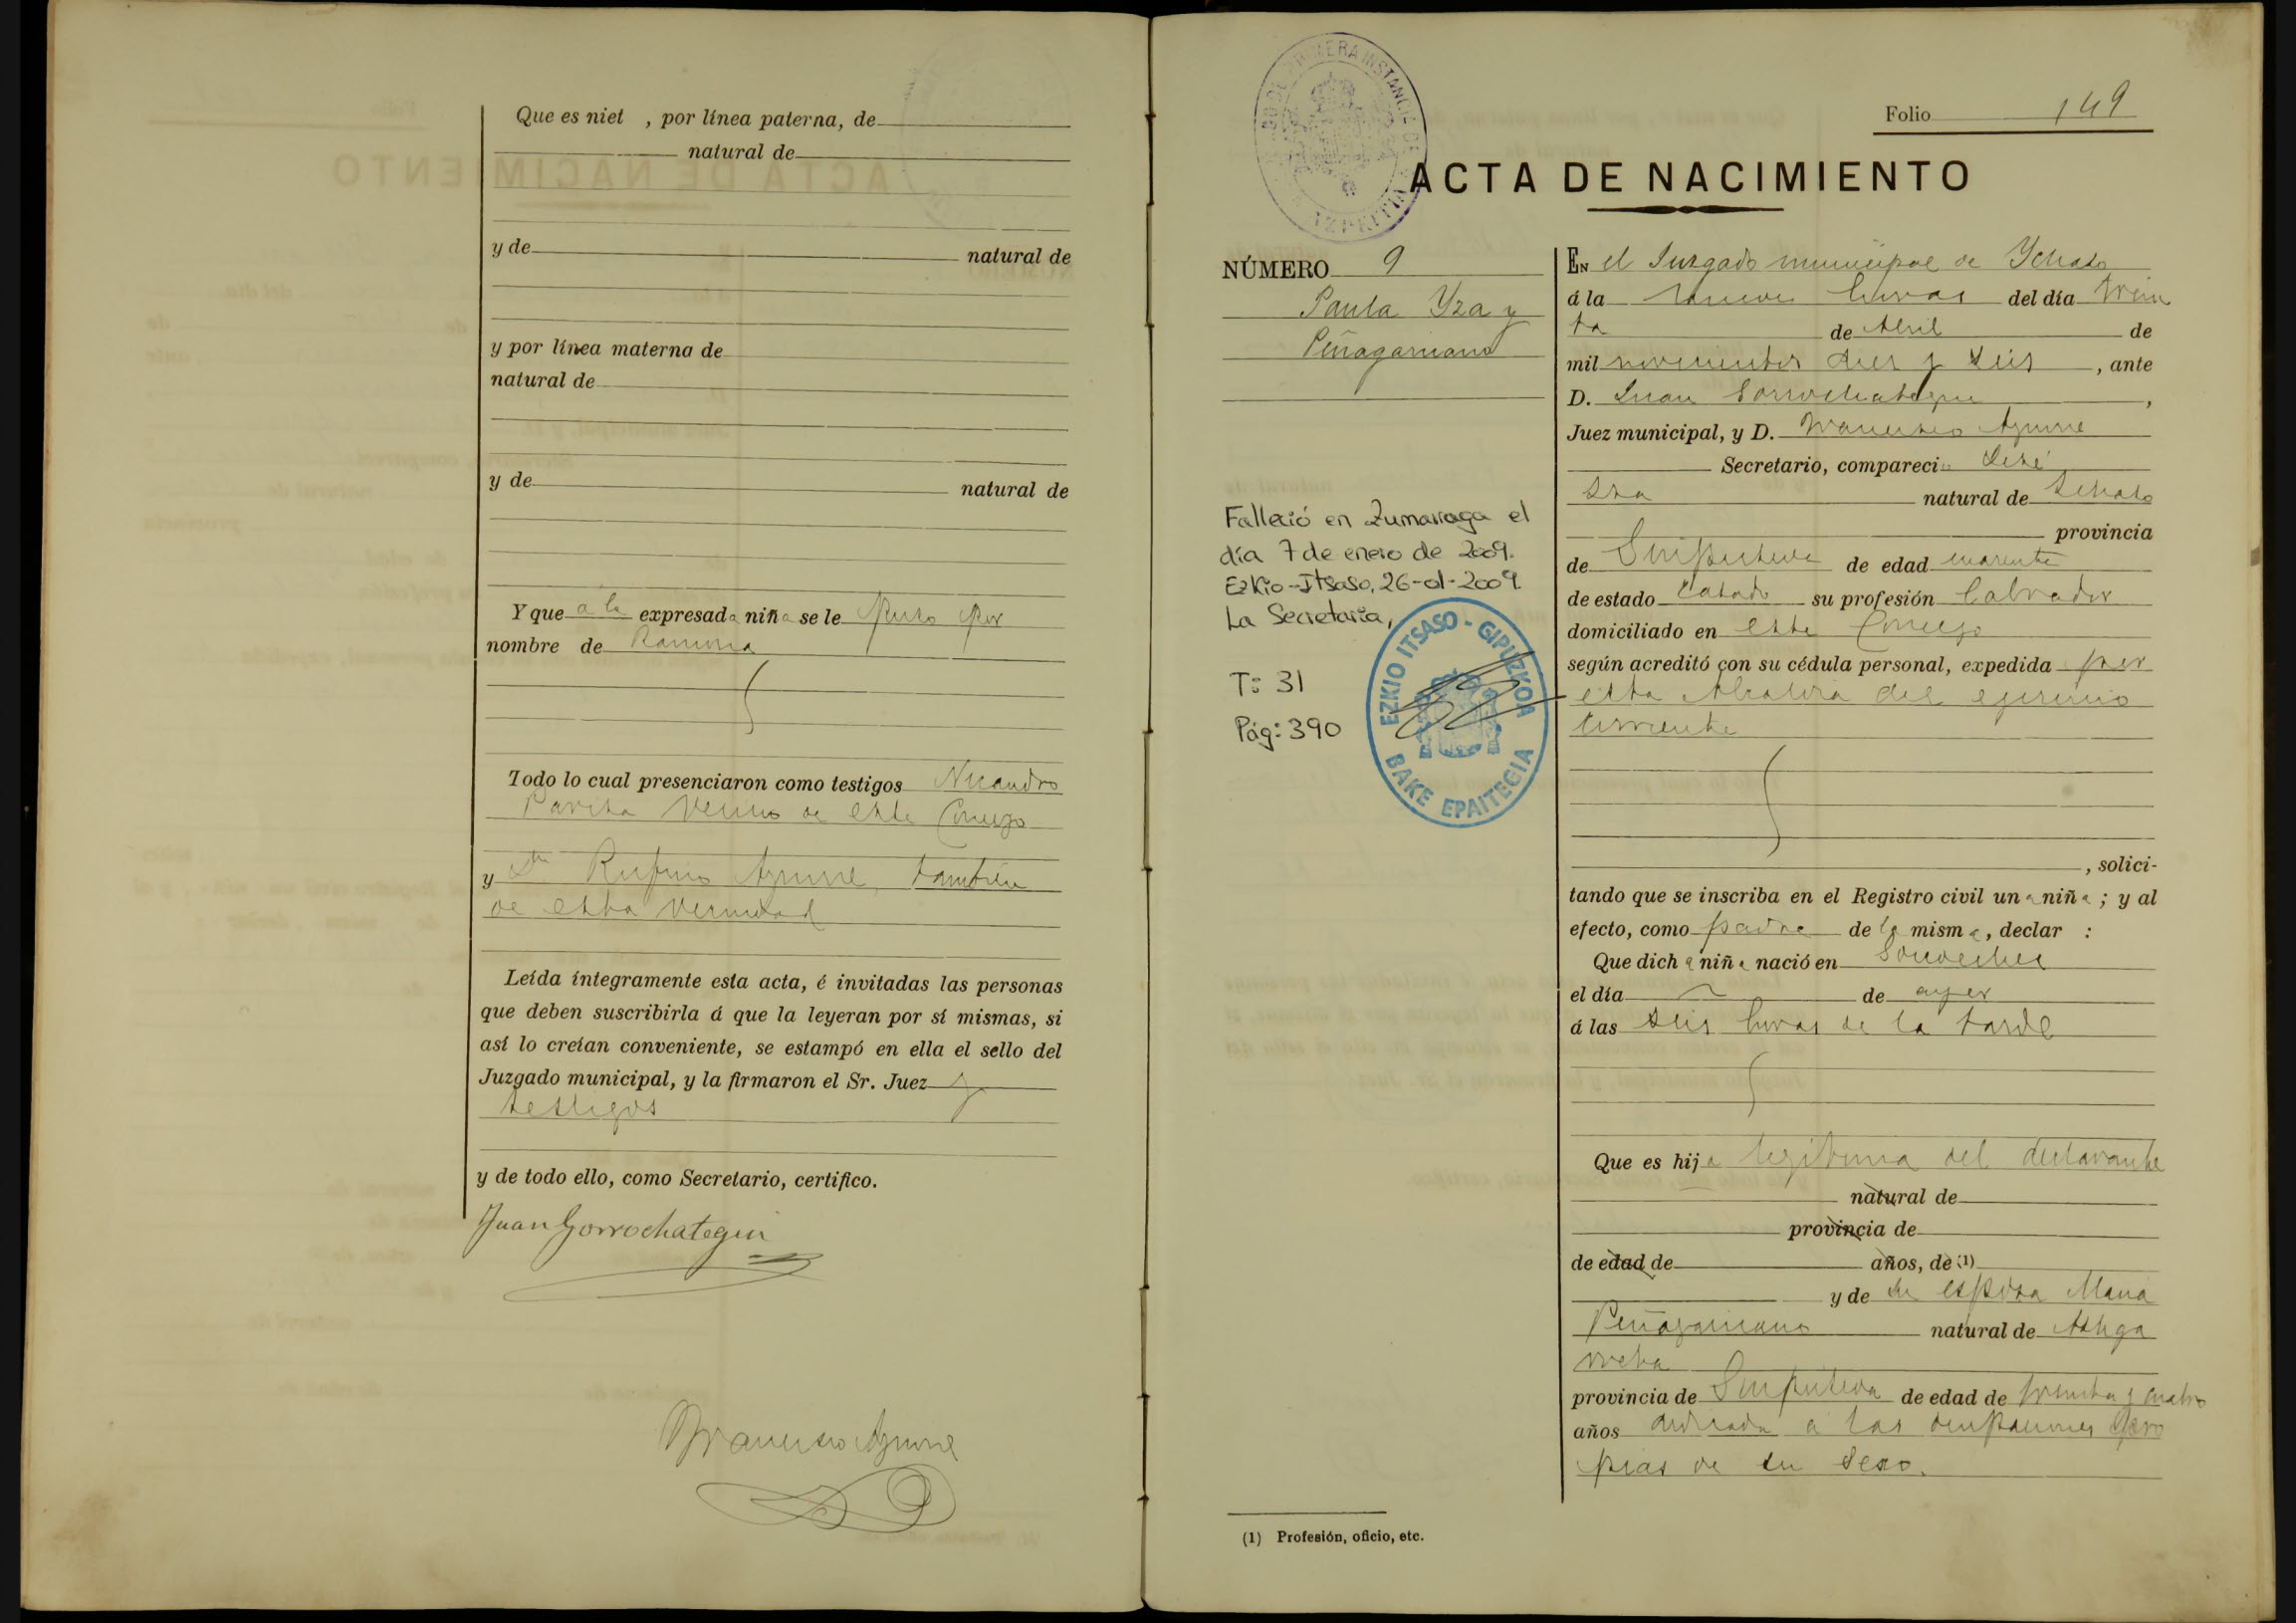 Que es niet , por línea paterna, de
natural de
y de natural de
y por línea materna de
natural de
y de natural de
Y que a la expresada niña se le puso por
nombre de Ramona
Todo lo cual presenciaron como testigos Nicandro
vecino de este Concejo
y Dn Rufino Aguirre, también
de esta vecindad
Leída íntegramente esta acta, é invitadas las personas
que deben suscribirla á que la leyeran por sí mismas, si
así lo creían conveniente, se estampó en ella el sello del
Juzgado municipal, y la firmaron el Sr. Juez y
testigos
y de todo ello, como Secretario, certifico.
Juan Gorrochategui
Francisco Aguirre
Folio 149
ACTA DE NACIMIENTO
NÚMERO 9
Paula Yza y
Peñagaricano
Falleció en Zumarraga el
día 7 de enero de 2009.
Ezkio-Itsaso, 26-01-2009.
La Secretaria,
T: 31
Pág: 390
EZKIO ITSASO - GIPUZKOA
BAKE EPAITEGIA
EN el Juzgado municipal de Ychaso
á la nueve horas del día trein
ta de Abril de
mil novecientos diez y seis , ante
D. Juan Gorrochategui ,
Juez municipal, y D. Francisco Aguirre
Secretario, compareció José
Yza natural de Ychaso
provincia
de Guipúzcoa de edad cuarenta
de estado casado su profesión labrador
domiciliado en este Concejo
según acreditó con su cédula personal, expedida por
esta Alcaldía del ejercicio
corriente
, solici-
tando que se inscriba en el Registro civil una niña ; y al
efecto, como padre de la misma , declar :
Que dicha niña nació en
el día de ayer
á las seis horas de la tarde
Que es hija legítima del declarante
natural de
provincia de
de edad de años, de (1)
y de su esposa María
Peñagaricano natural de Astiga
rreta
provincia de Guipúzcoa de edad de treinta y cuatro
años dedicada a las ocupaciones pro
pias de su sexo.
(1) Profesión, oficio, etc.